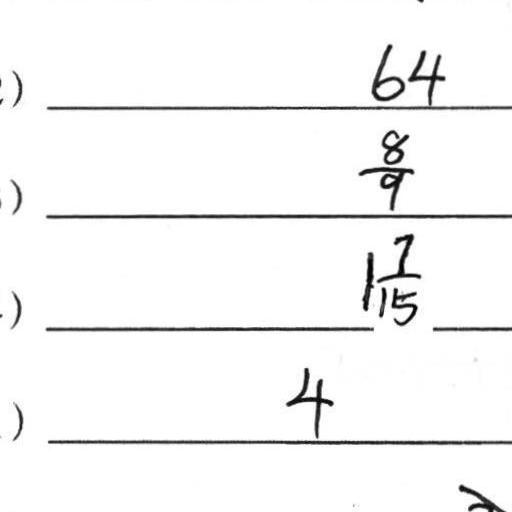 ) 64
) 8/9
) 1 7/15
) 4